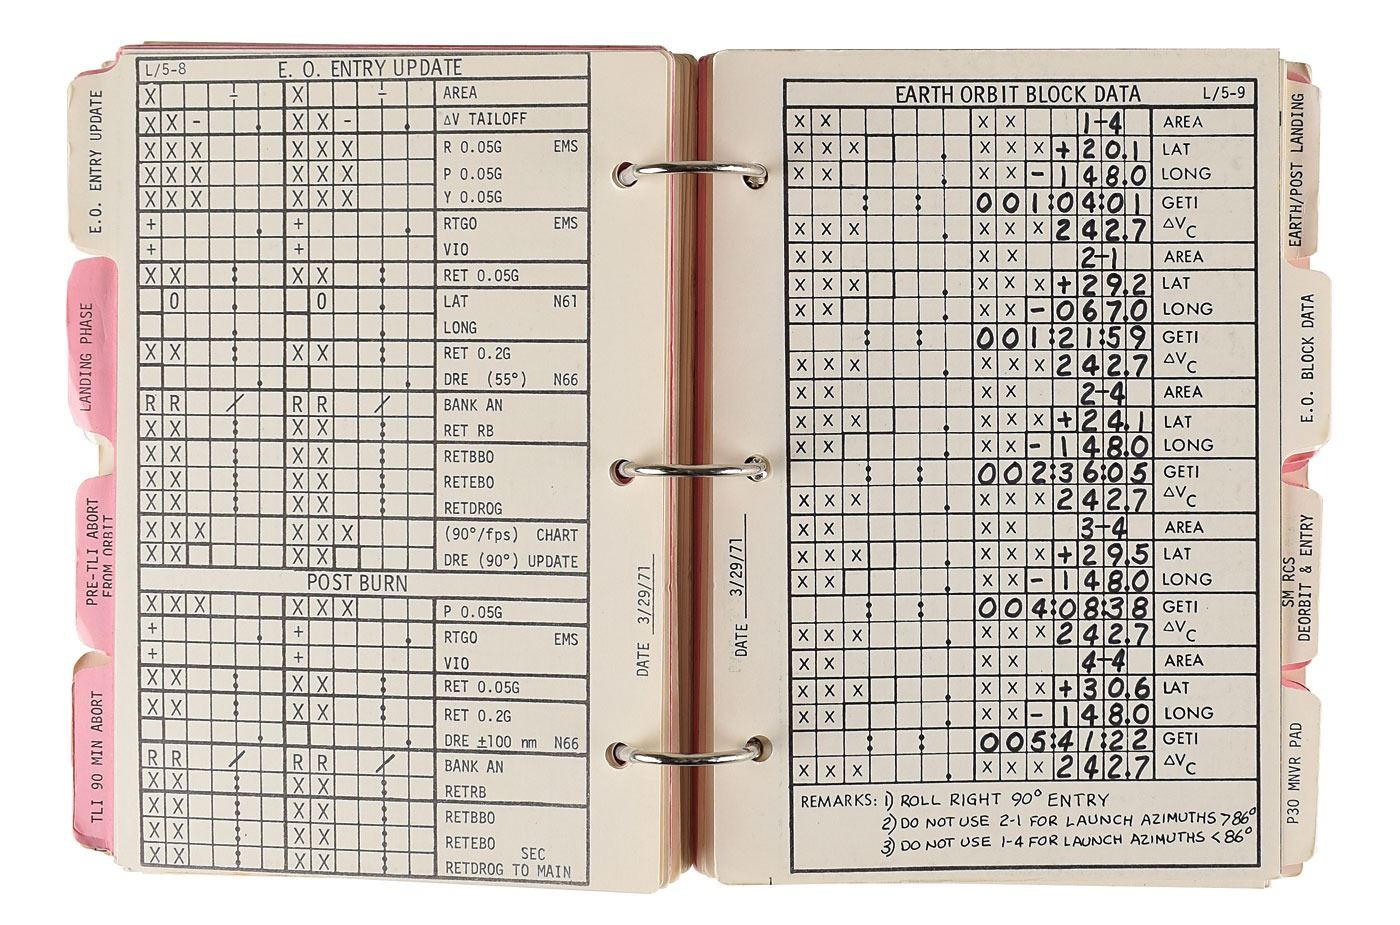 E.O. ENTRY UPDATE
LANDING PHASE
PRE-TLI ABORT
FROM ORBIT
TLI 90 MIN ABORT
L/5-8 E. O. ENTRY UPDATE
X - X - AREA
X X - . X X - . ΔV TAILOFF
X X X X X X R 0.05G EMS
X X X X X X P 0.05G
X X X X X X Y 0.05G
+ . + . RTGO EMS
+ + VIO
X X : X X : RET 0.05G
0 0 LAT N61
LONG
X X : X X : RET 0.2G
. . DRE (55°) N66
R R / R R / BANK AN
X X : X X : RET RB
X X : X X : RETBBO
X X : X X : RETEBO
X X : X X : RETDROG
X X X X X X (90°/fps) CHART
X X X X DRE (90°) UPDATE
POST BURN
X X X X X X P 0.05G
+ . + . RTGO EMS
+ + VIO
X X : X X : RET 0.05G
X X : X X : RET 0.2G
. . DRE ±100 nm N66
R R / R R / BANK AN
X X : X X : RETRB
X X : X X : RETBBO
X X : X X : RETEBO SEC
X X : X X : RETDROG TO MAIN
DATE 3/29/71
DATE 3/29/71
EARTH ORBIT BLOCK DATA L/5-9
X X X X 1-4 AREA
X X X . X X X +20.1 LAT
X X . X X -148.0 LONG
: : 001:04:01 GETI
X X X . X X X 242.7 ΔVC
X X X X 2-1 AREA
X X X . X X X +29.2 LAT
X X . X X -067.0 LONG
: : 001:21:59 GETI
X X X . X X X 242.7 ΔVC
X X X X 2-4 AREA
X X X . X X X +24.1 LAT
X X . X X -148.0 LONG
: : 002:36:05 GETI
X X X . X X X 242.7 ΔVC
X X X X 3-4 AREA
X X X . X X X +29.5 LAT
X X . X X -148.0 LONG
: : 004:08:38 GETI
X X X . X X X 242.7 ΔVC
X X X X 4-4 AREA
X X X . X X X +30.6 LAT
X X . X X -148.0 LONG
: : 005:41:22 GETI
X X X . X X X 242.7 ΔVC
REMARKS: 1) ROLL RIGHT 90° ENTRY
2) DO NOT USE 2-1 FOR LAUNCH AZIMUTHS >86°
3) DO NOT USE 1-4 FOR LAUNCH AZIMUTHS <86°
EARTH/POST LANDING
E.O. BLOCK DATA
SM RCS
DEORBIT & ENTRY
P30 MNVR PAD